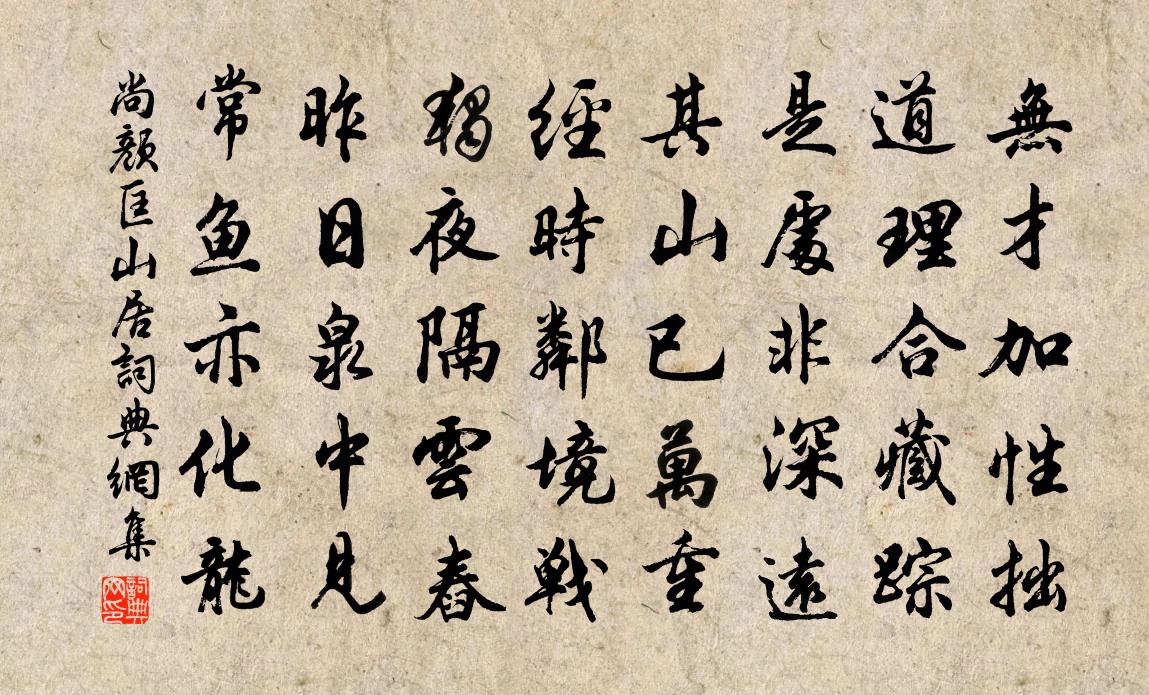 無才加性拙
道理合藏踪
是處非深遠
其山已萬重
經時鄰境戰
獨夜隔雲舂
昨日泉中見
常魚亦化龍
尚顏匡山居詞典網集
詞典
网印